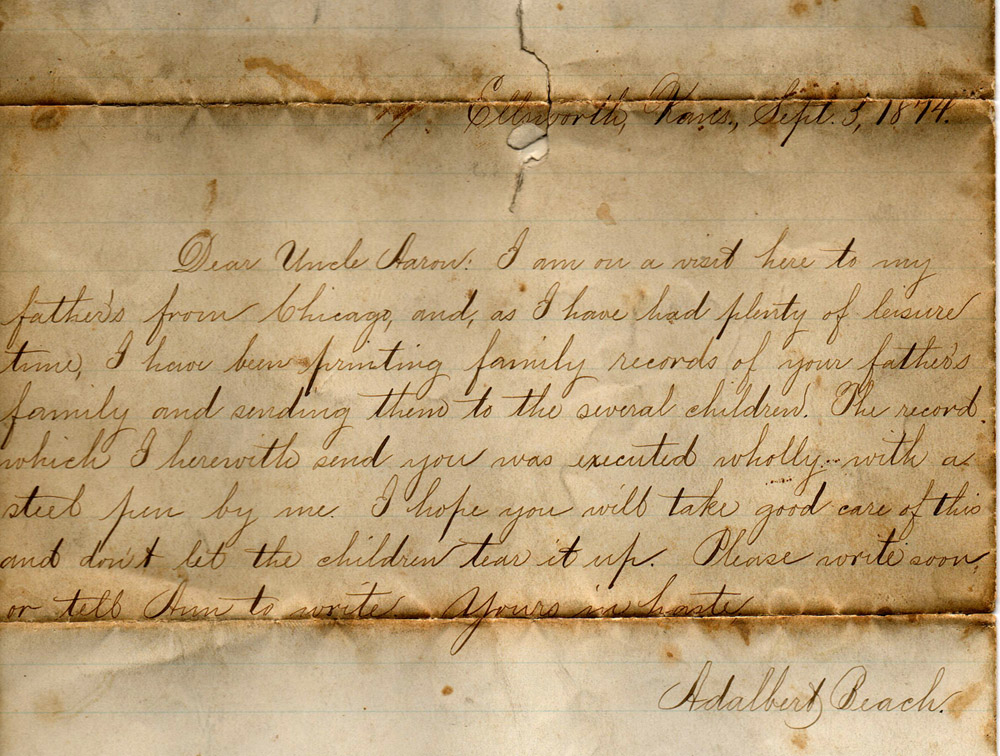 Ellsworth, Kans., Sept. 3, 1874.
Dear Uncle Aaron: I am on a visit here to my
father's from Chicago, and, as I have had plenty of leisure
time, I have been printing family records of your father's
family and sending them to the several children. The record
which I herewith send you was executed wholly with a
steel pen by me. I hope you will take good care of this
and don't let the children tear it up. Please write soon,
or tell Ann to write Yours in haste
Adalbert Beach.